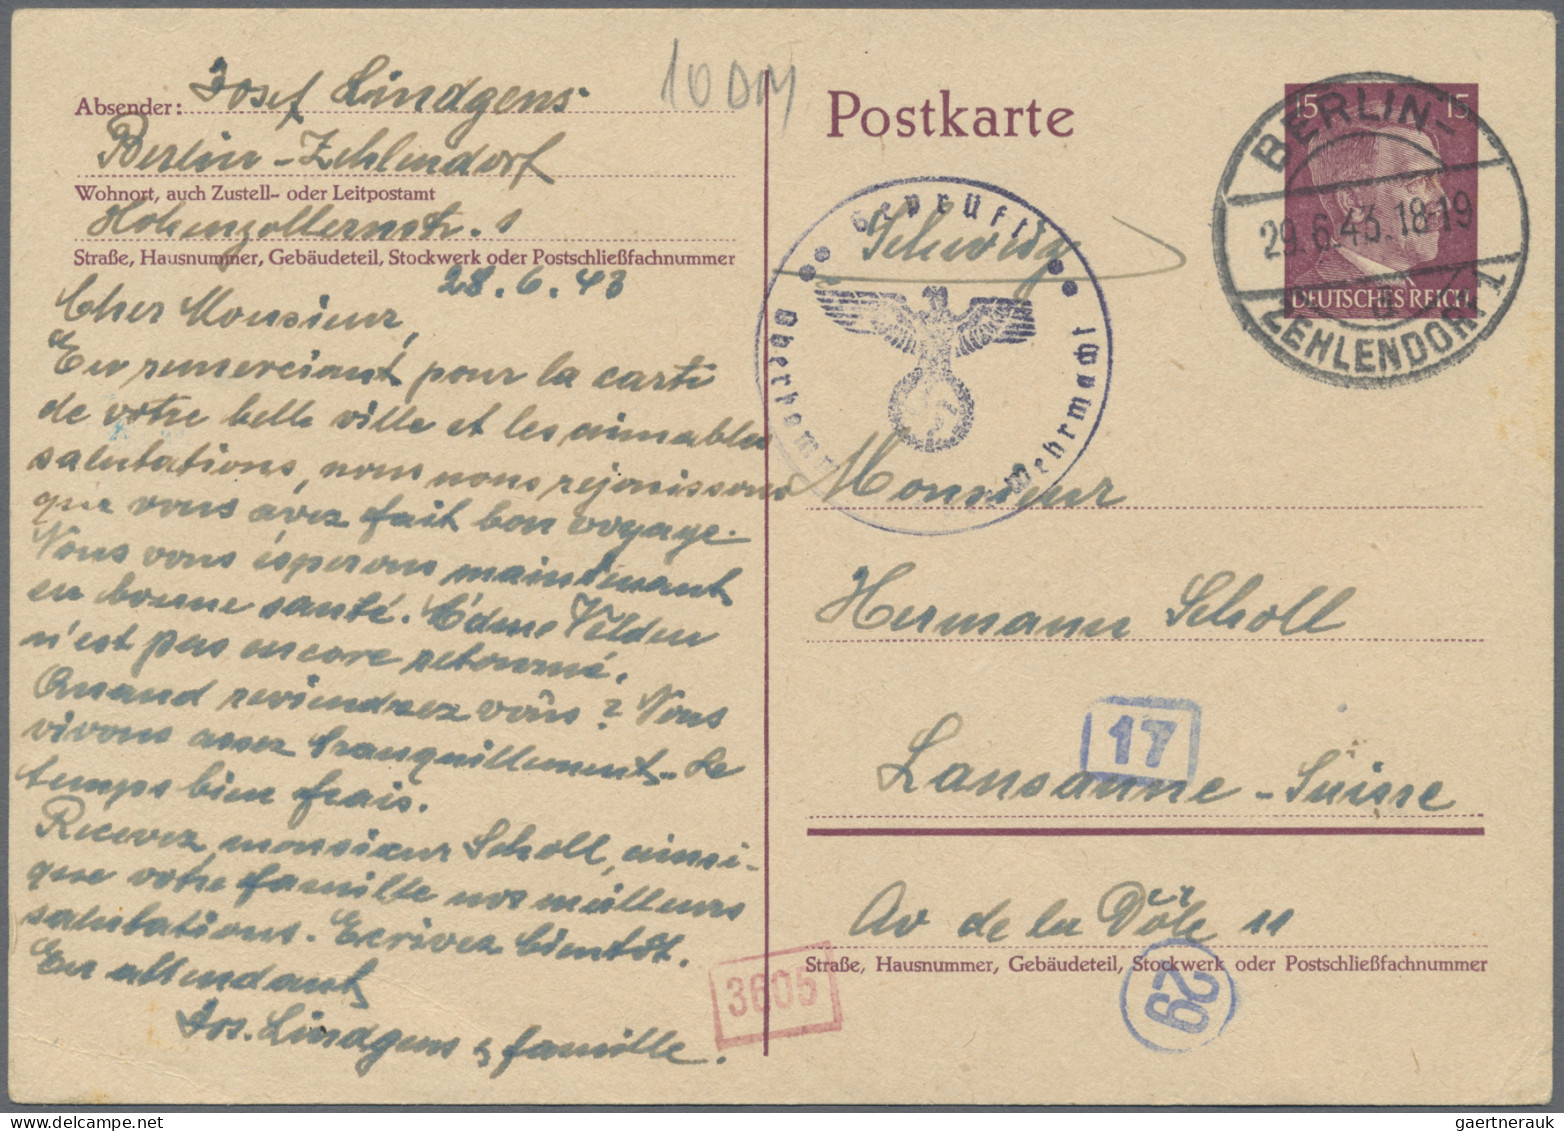 Absender: Josef Lindgens
Berlin-Zehlendorf
Wohnort, auch Zustell- oder Leitpostamt
Hohenzollernstr. 1
Straße, Hausnummer, Gebäudeteil, Stockwerk oder Postschließfachnummer
28.6.43
Cher Monsieur,
En remerciant pour la carte
de votre belle ville et les aimables
salutations, nous nous rejouissons
que vous avez fait bon voyage.
Nous vous ésperons maintenant
en bonne santé. Edme Velden
n'est pas encore retourné.
Quand reviendrez vous? Nous
vivons assez tranquillement. Le
temps bien frais.
Recevez, monsieur Scholl, ainsi-
que votre famille nos meilleurs
salutations. Ecrivez bientôt.
En attendant
Jos. Lindgens & famille.
10 DM
Postkarte
Schweiz
Geprüft
Oberkommando Wehrmacht
15 15
DEUTSCHES REICH
BERLIN-
29.6.43.18-19
ZEHLENDORF 1
Monsieur
Hermann Scholl
17
Lausanne - Suisse
Av de la Dôle 11
Straße, Hausnummer, Gebäudeteil, Stockwerk oder Postschließfachnummer
3605
29
gaertnerauk